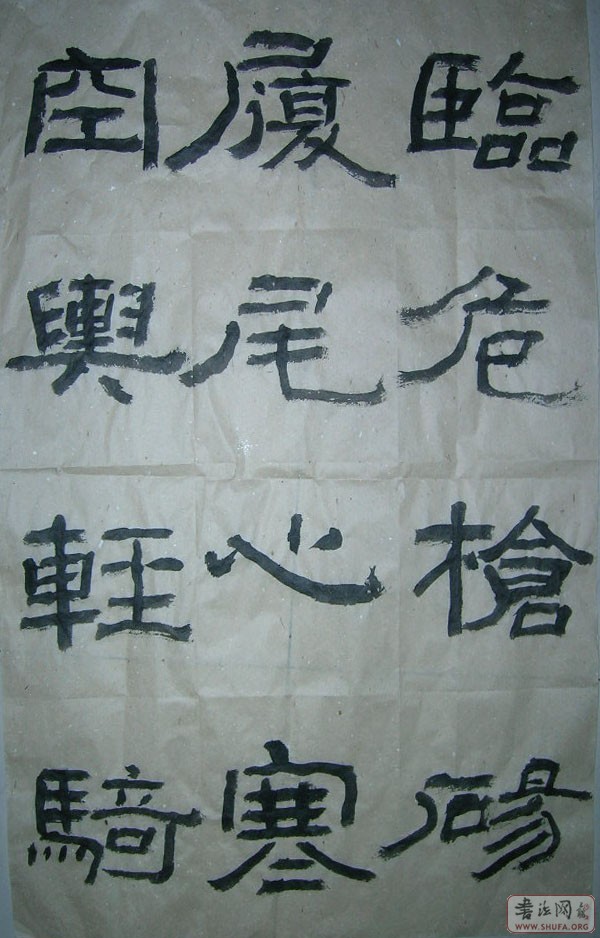 臨危槍碭
履尾心寒
空輿輕騎
书法网
WWW.SHUFA.ORG